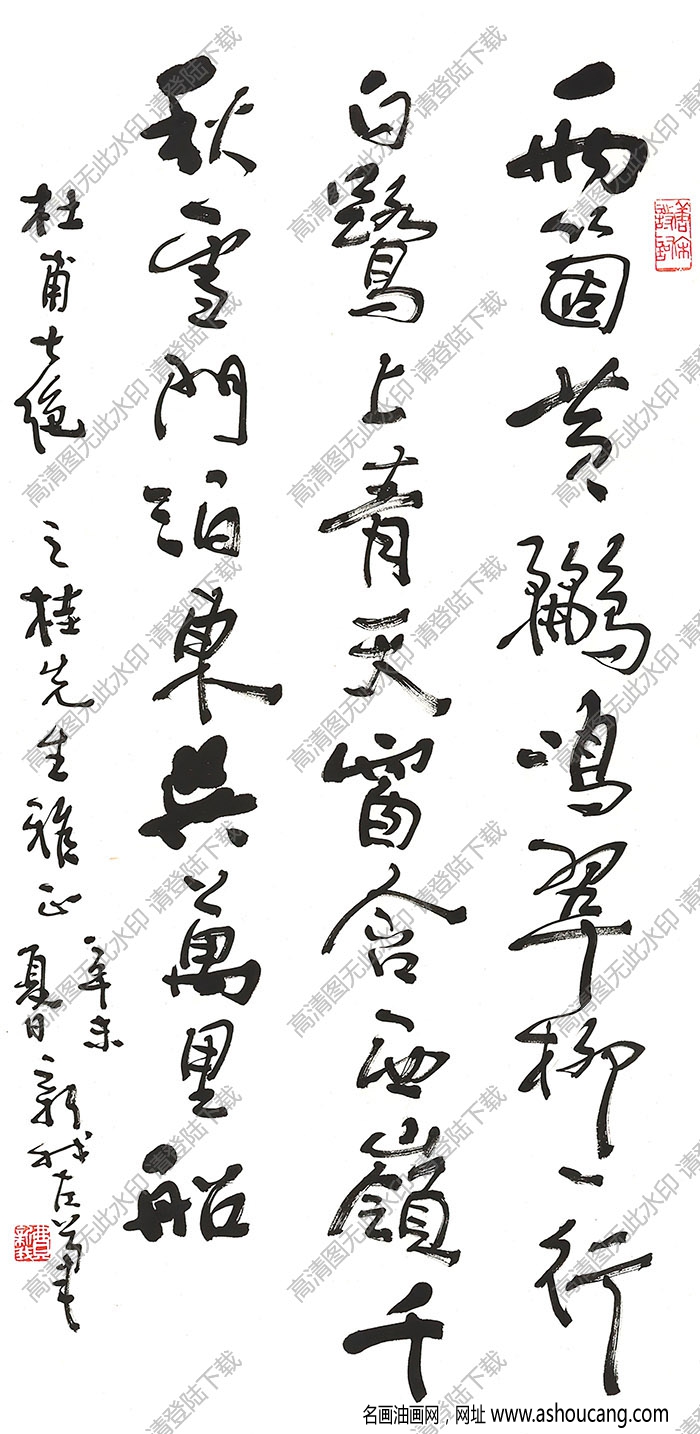 兩箇黄鸝鳴翠柳一行
白鷺上青天窗含西嶺千
秋雪門泊東吳萬里船
杜甫七絶 之桂先生雅正 辛未夏日 新我左筆
費新我
高清图无此水印 请登陆下载
名画油画网，网址 www.ashoucang.com